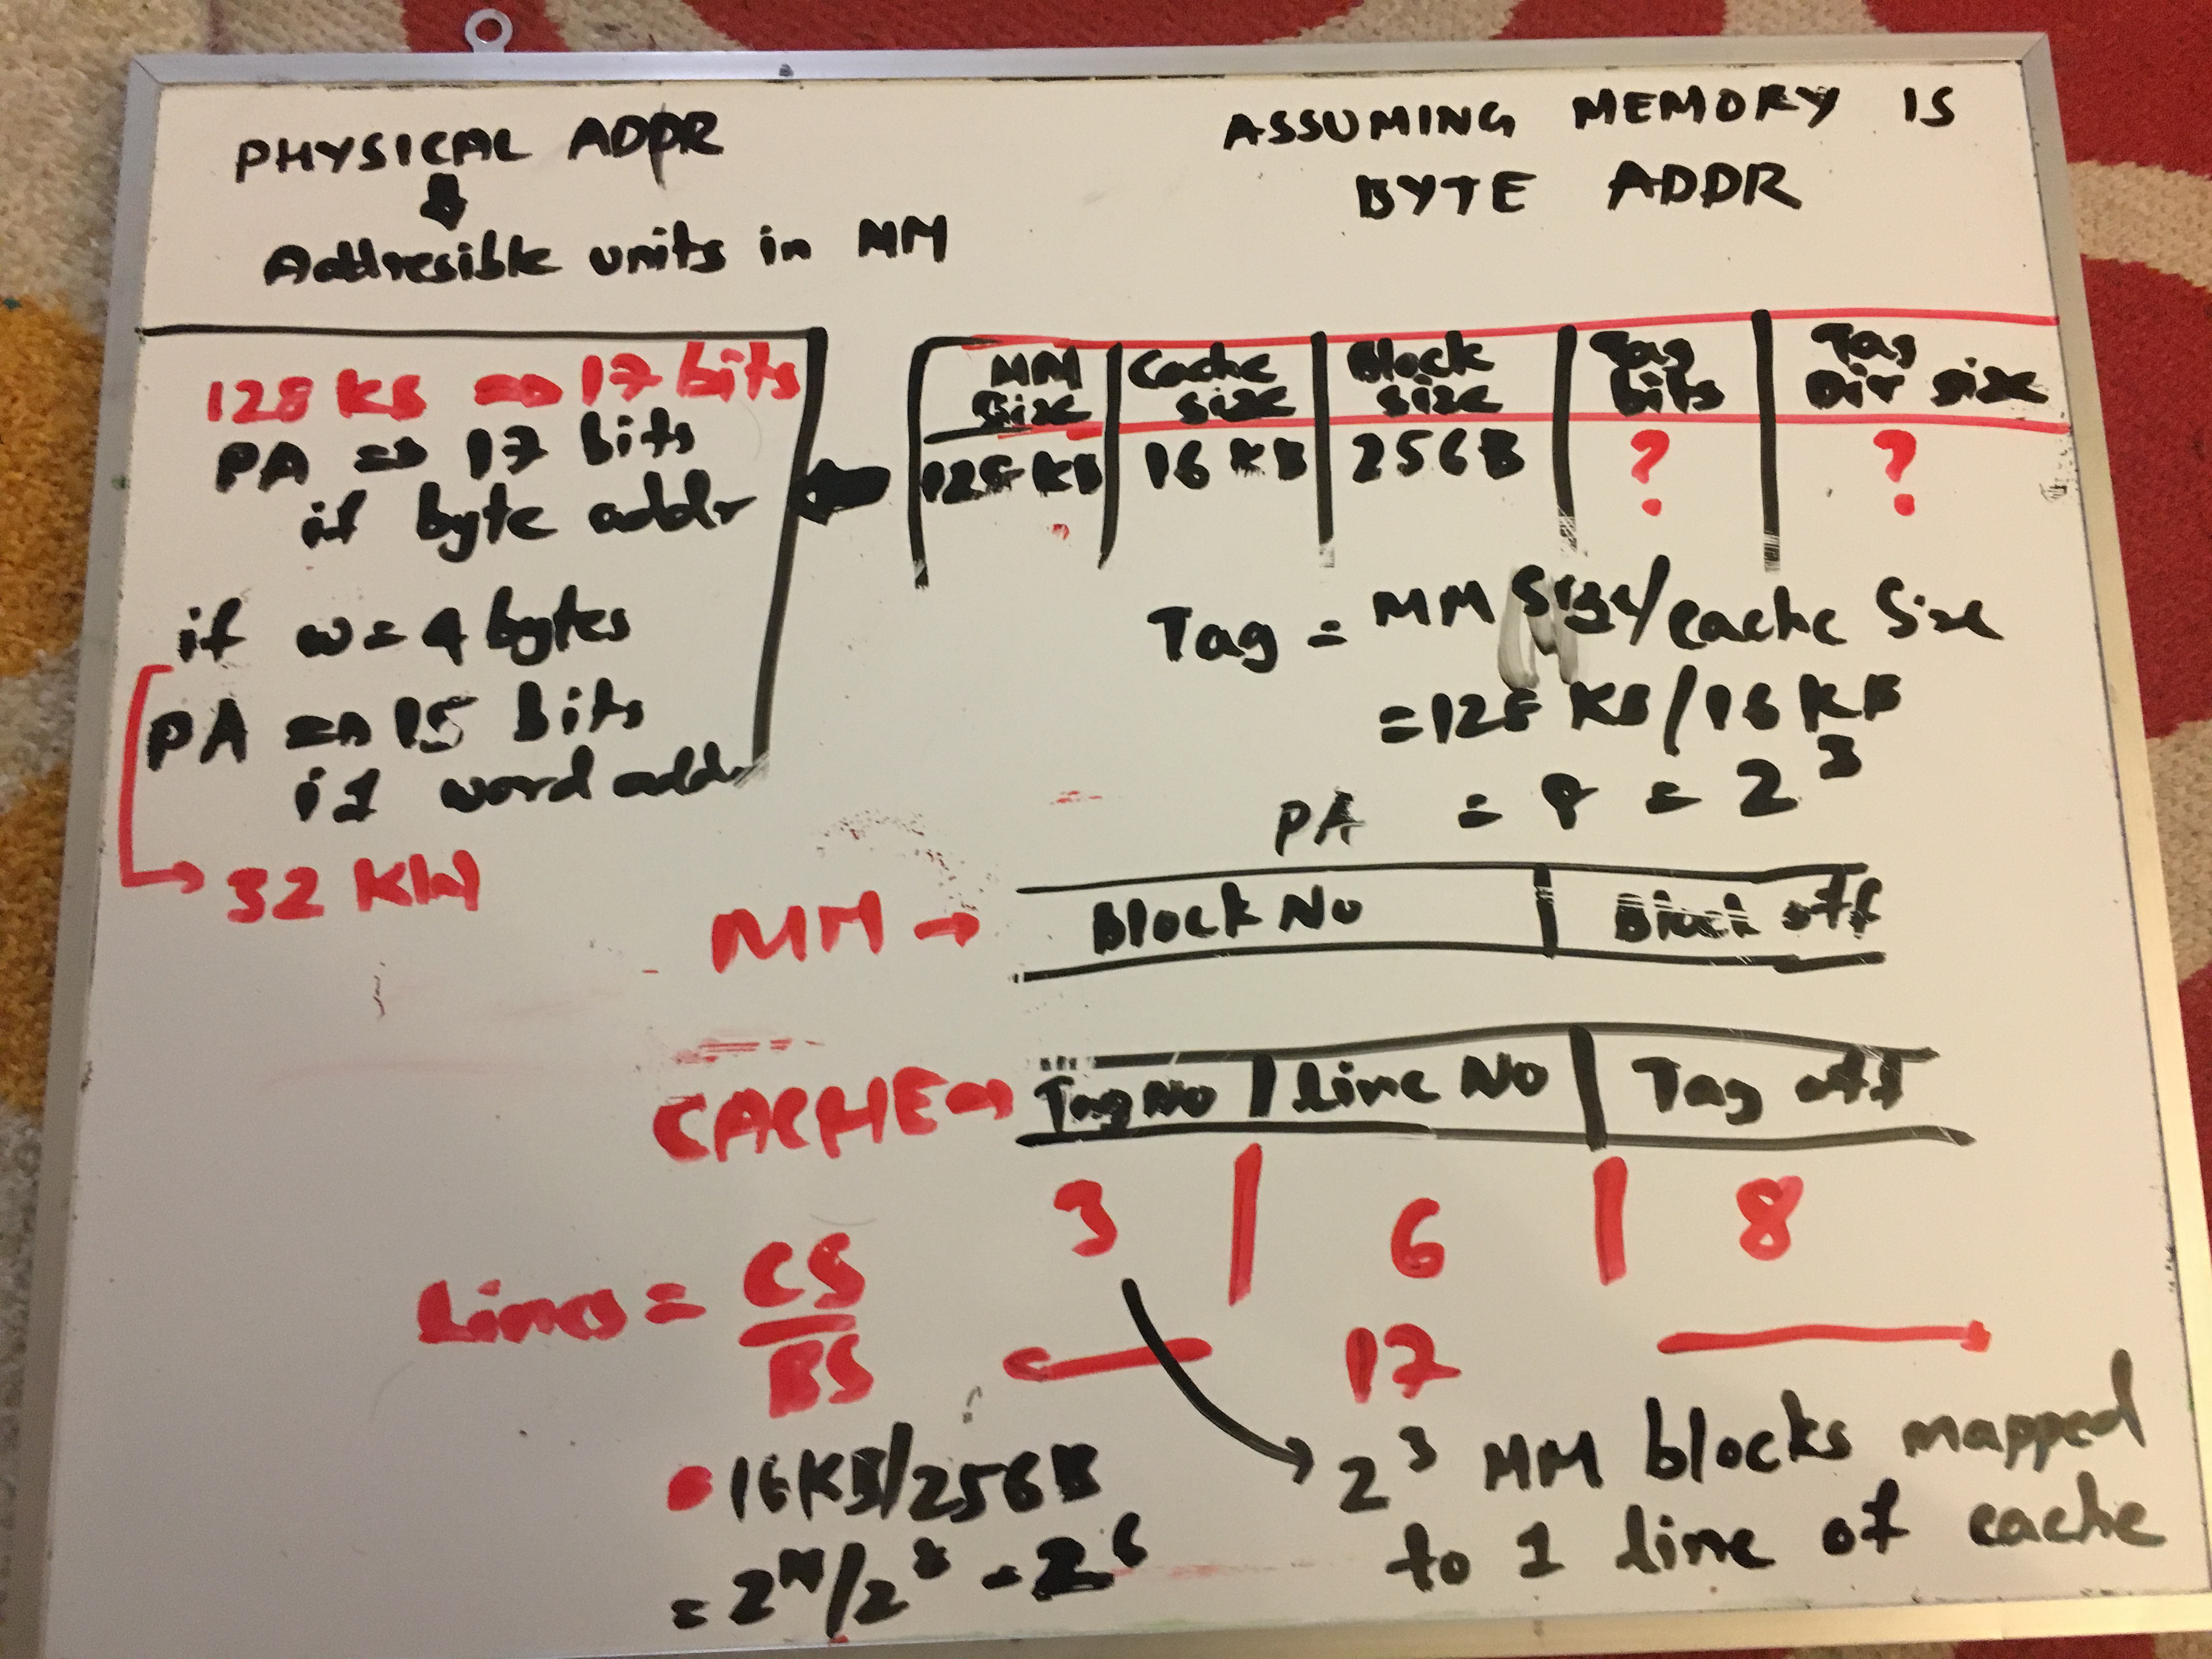 PHYSICAL ADDR
Addresible units in MM
ASSUMING MEMORY IS
BYTE ADDR
128 KB ⇒ 17 bits
PA ⇒ 17 bits
if byte addr
if w = 4 bytes
PA ⇒ 15 bits
if word addr
→ 32 KW
MM Size | Cache size | Block size | Tag bits | Tag Dir size
128 KB | 16 KB | 256B | ? | ?
Tag = MM Size/cache Size
= 128 KB/16 KB
= 8 = 2³
PA
MM → Block No | Block off
CACHE ⇒ Tag No | Line No | Tag off
3 | 6 | 8
17
Lines = CS
BS
16KB/256B
= 2¹⁴/2⁸ = 2⁶
2³ MM blocks mapped
to 1 line of cache